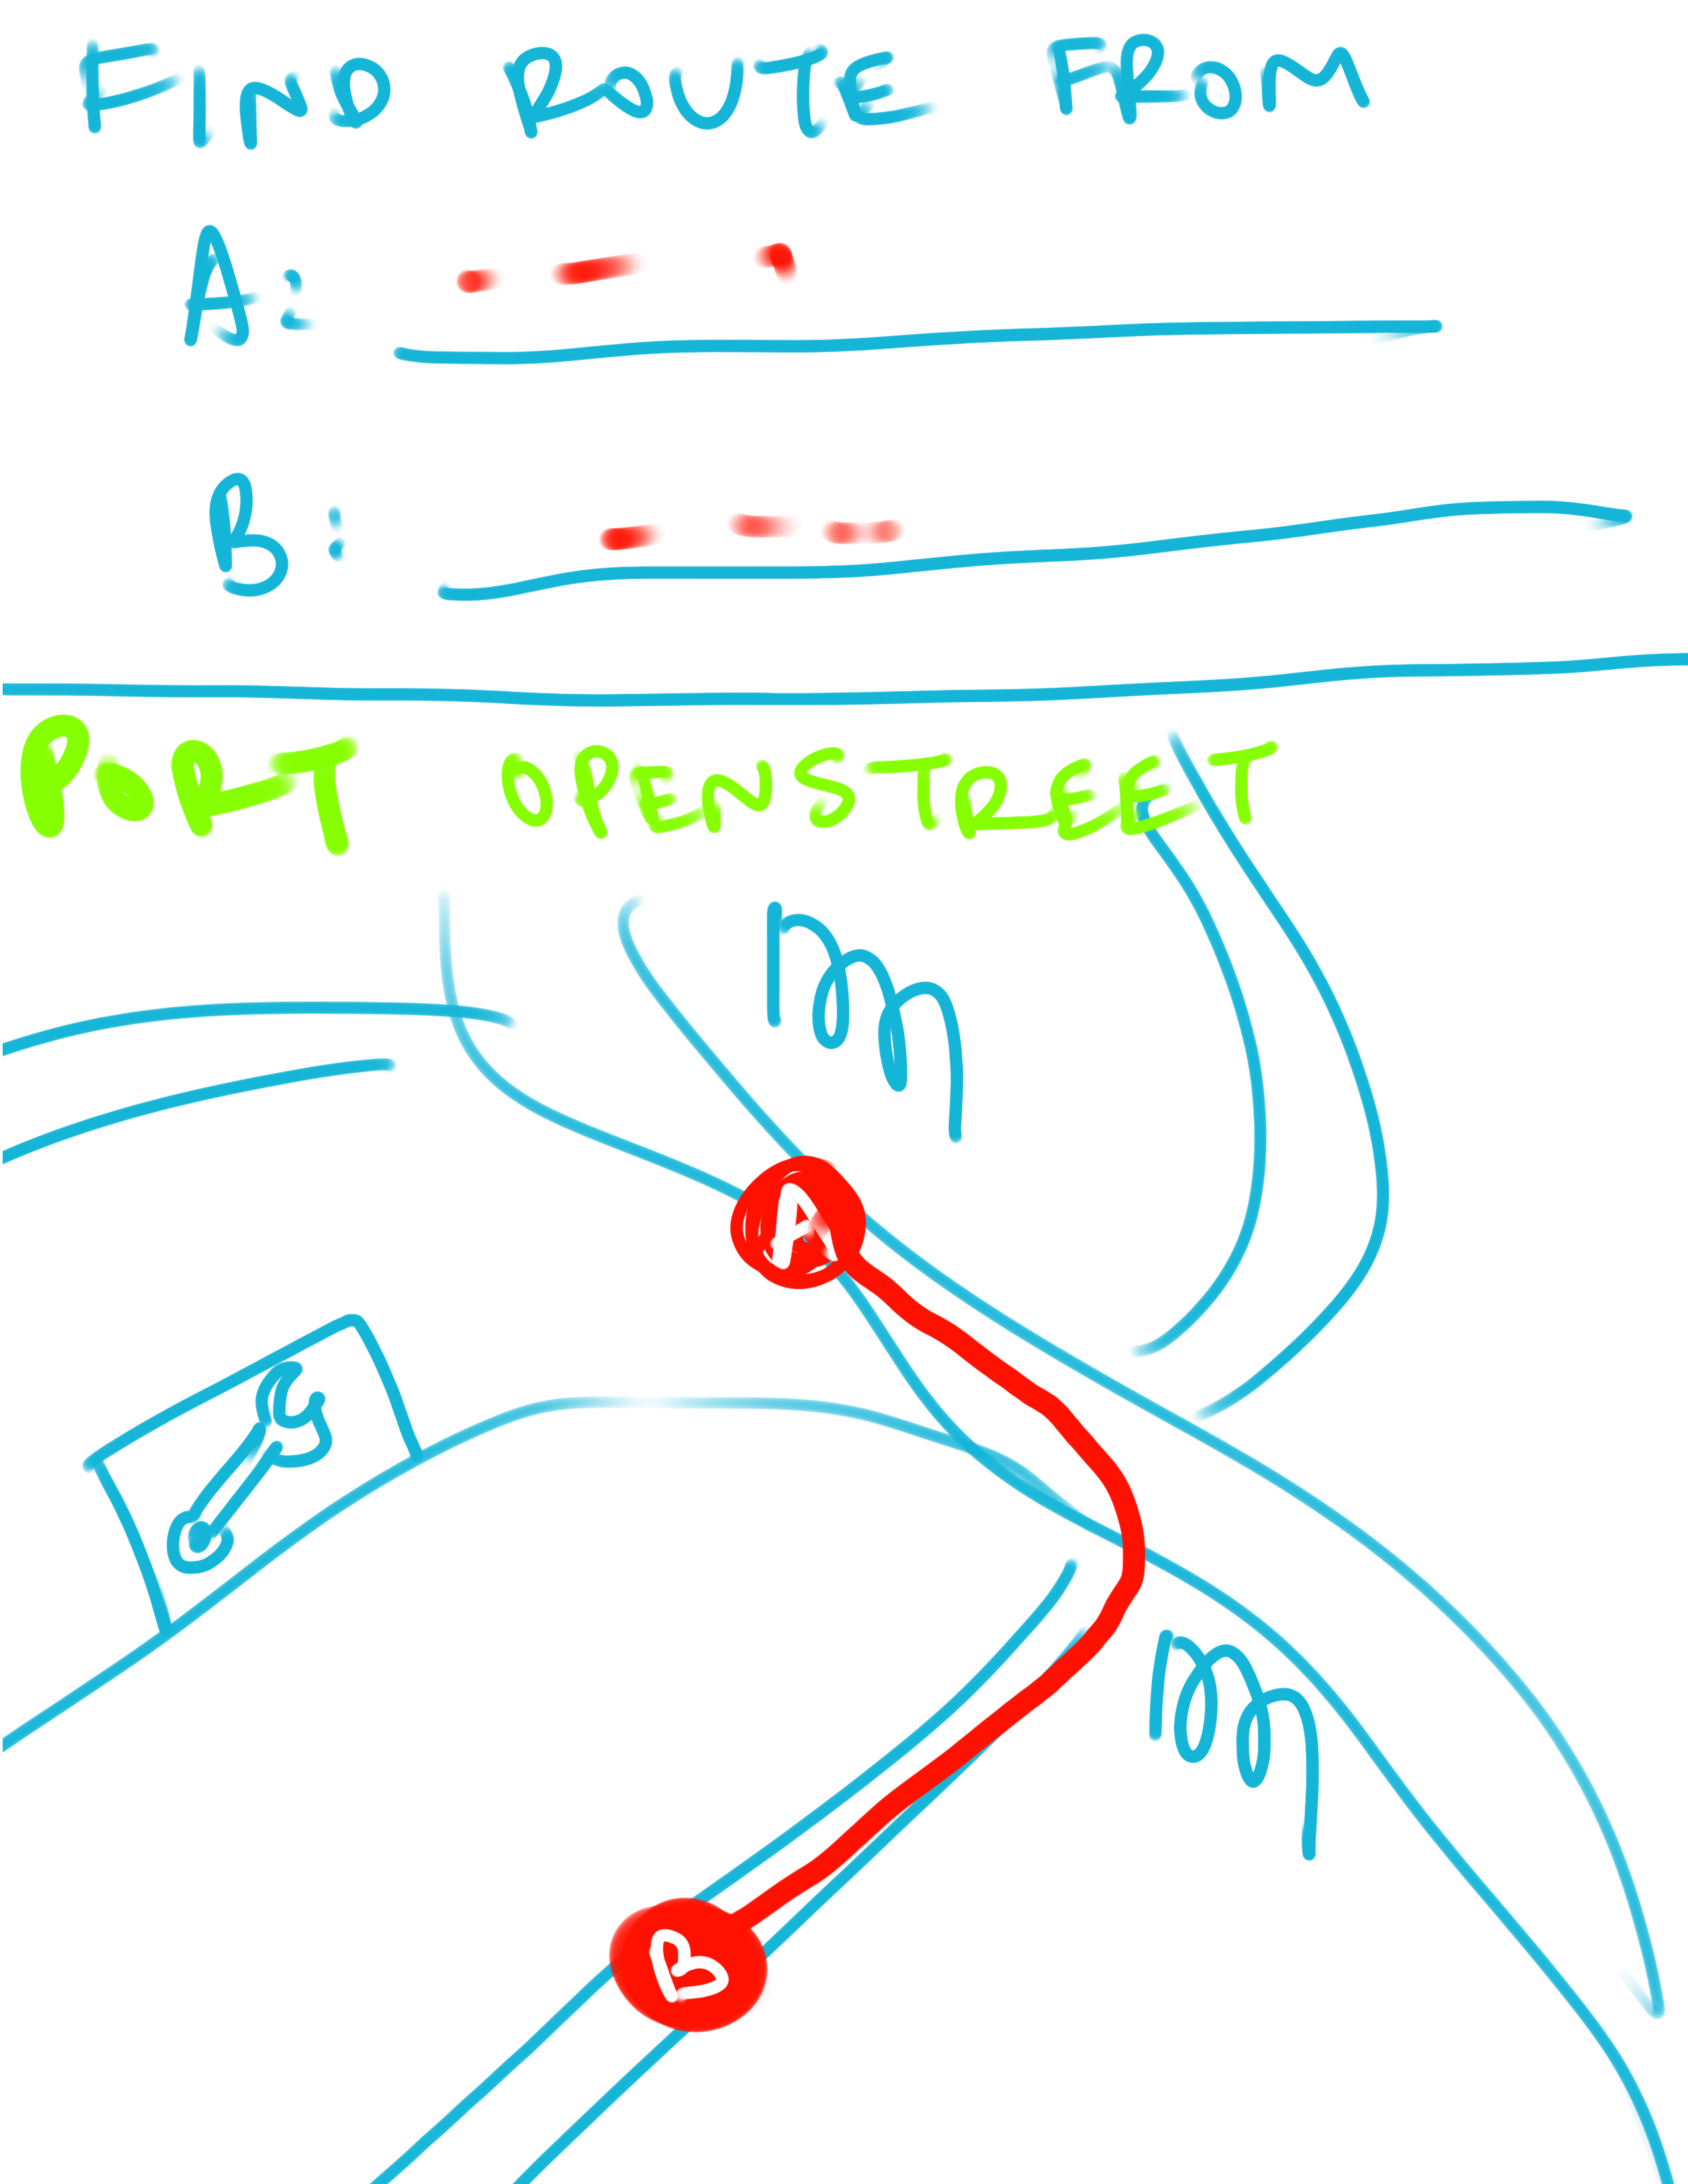 FIND ROUTE FROM
A:
B:
PORT OPENSTREET
A
B